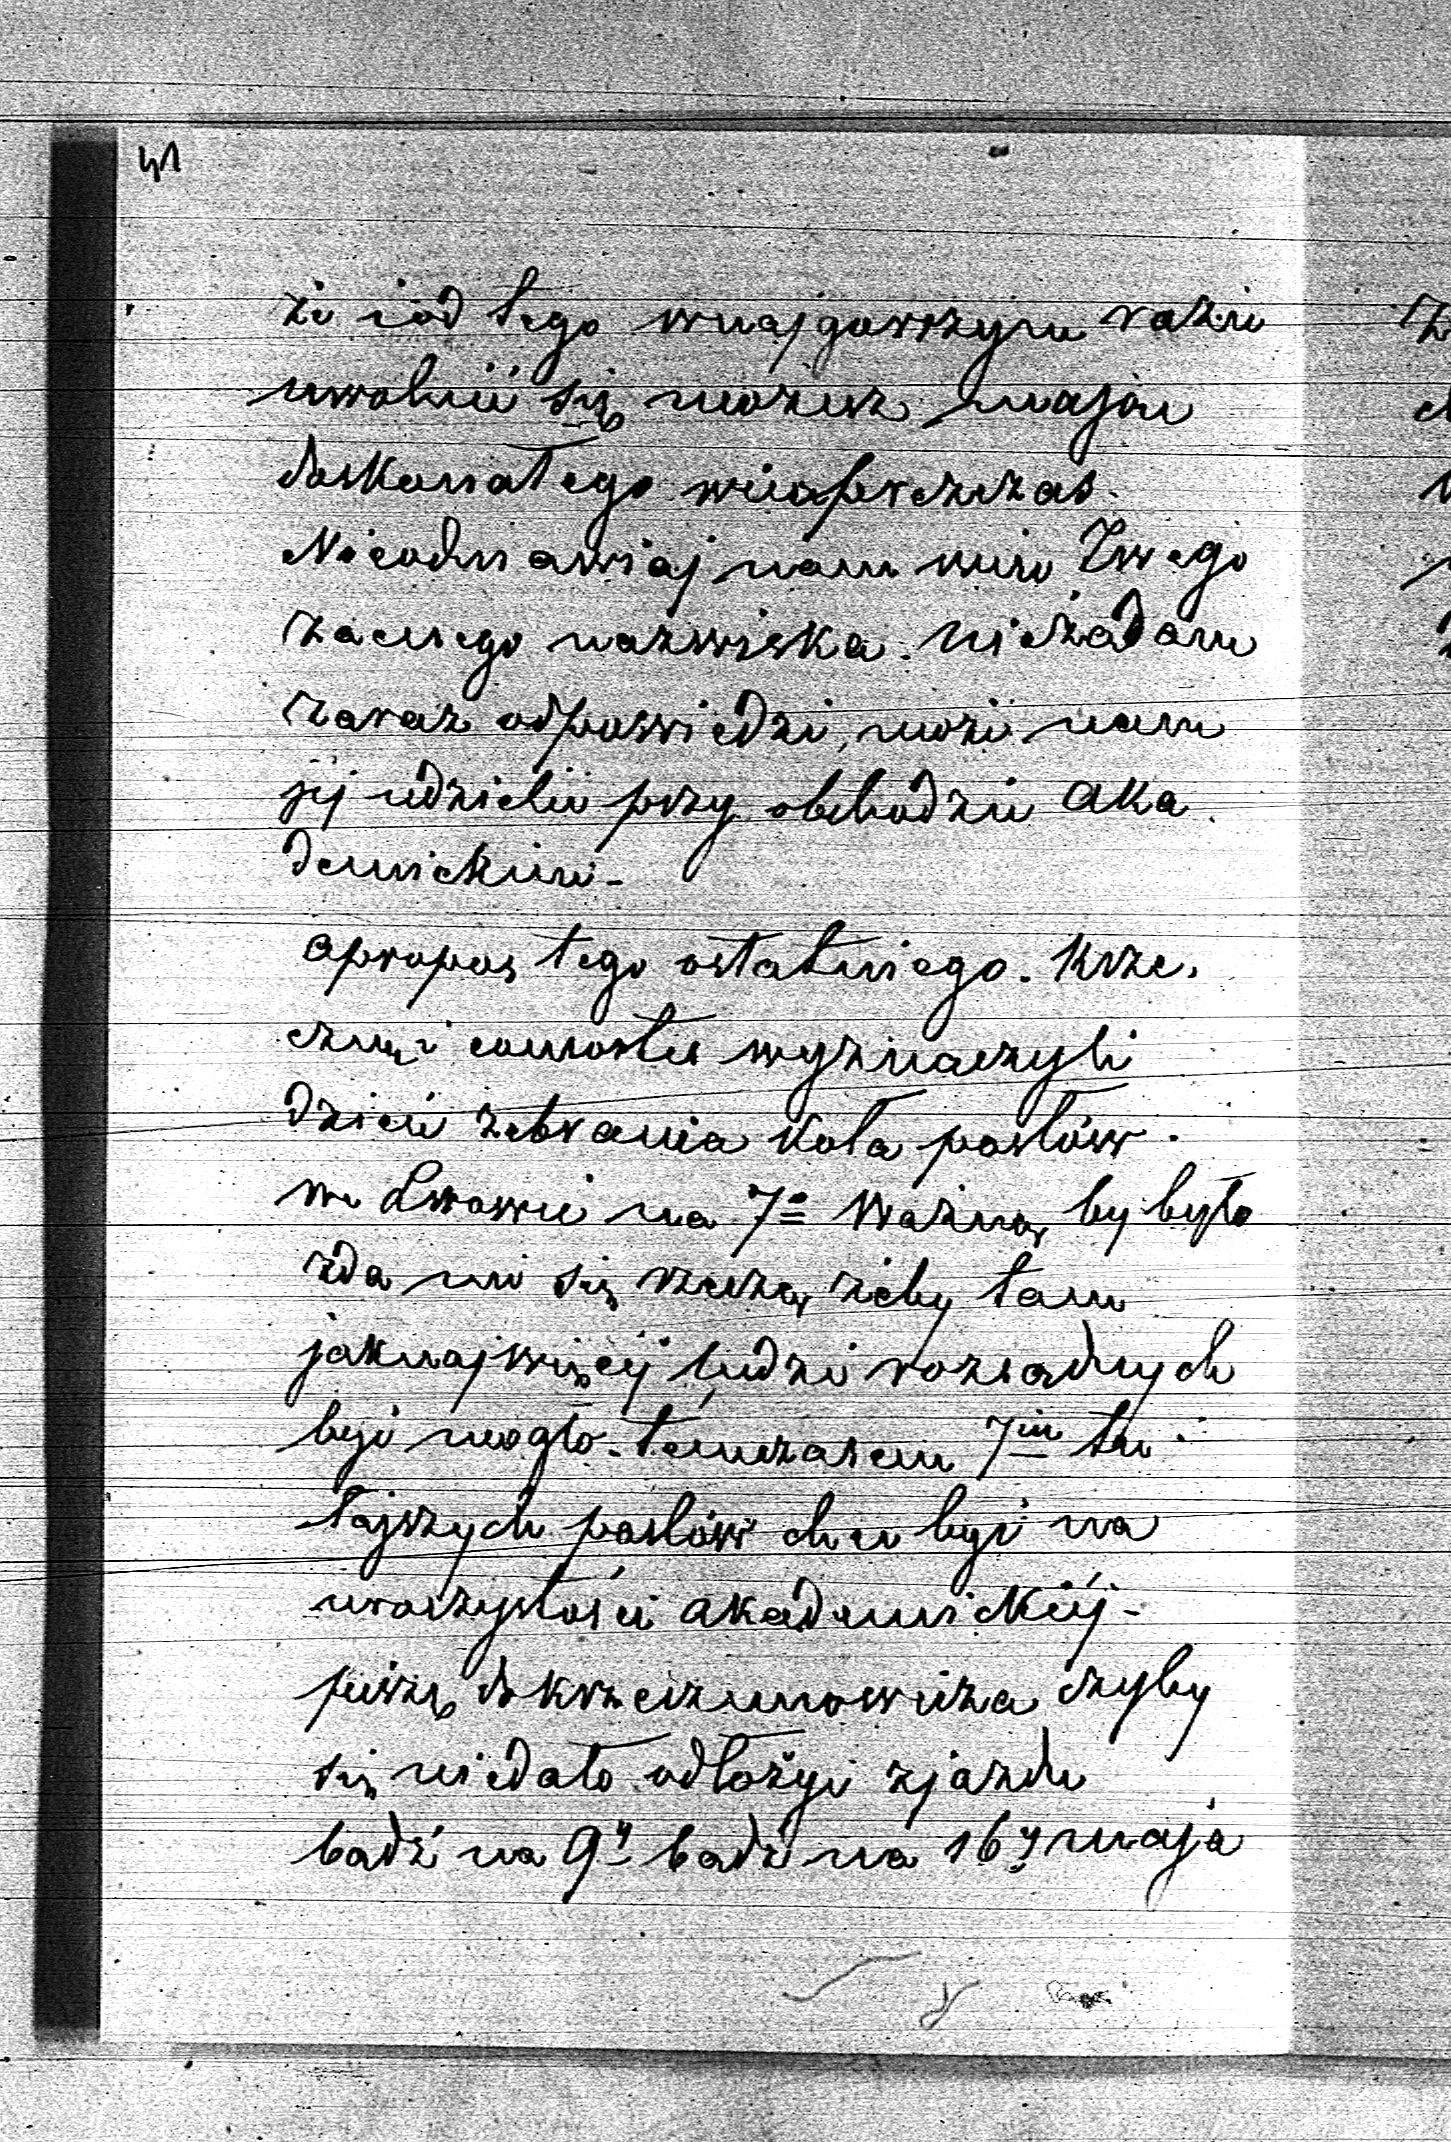 41
że i od tego w najgorszym razie
uwolnić się możesz mając
doskonałego wiceprezesa.
Nieodmawiaj nam więc Twego
zacnego nazwiska. Nieżądam
zaraz odpowiedzi, może nam
jéj udzielisz przy obchodzie Aka
demickim -
apropos tego ostatniego. Krze.
czun i consortes wyznaczyli
dzień zebrania Koła posłów
we Lwowie na 7o Ważną by było
zda mi się rzeczą żeby tam
jaknajwięcéj ludzi rozsądnych
być mogło. Tymczasem 7iu tu
tejszych posłów chce być na
uroczystości Akademickiéj -
piszę do Krzeczunowicza czyby
się niedało odłożyć zjazdu
bądź na 9y bądź na 16y maja